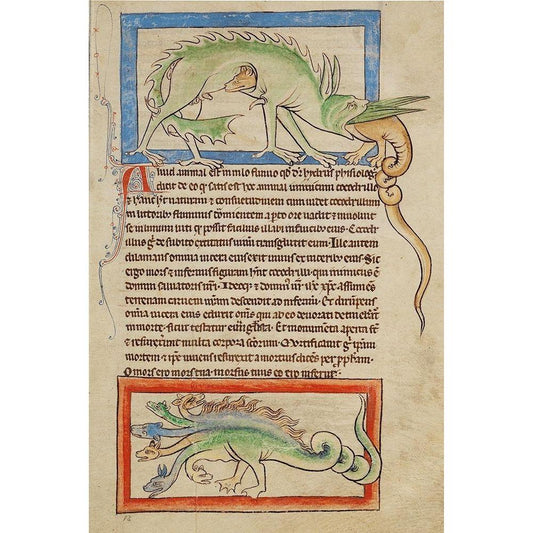 Aliud animal est in nilo fluuio qd dr hydrus physiolog
dicit de eo q satis est hec animal inimicum cocodrillo
& hanc ht naturam & consuetudinem cum uidet cocodrillum
in littoribus fluminis dormientem aperto ore uadit & inuoluit
se in limum luti q possit facilius illabi in faucibus eius. Cocodr
illus g de subito excitatus uiuum transglutit eum. Ille autem
omnia uiscera eius exit uiuus ex uisceribus eius. Sic
ergo mors & infernus figuram hnt cocodrilli. qui inimicus e
domini saluatoris nri. Ideoq & dominus nr ihc xpc assumens
terrenam carnem nram descendit ad infernum. Et dirumpens
omnia uiscera eius eduxit oms qui ab eo deuorati
in morte. sicut testatur euglista. Et monumenta aperta st
& resurrexerunt multa corpora scorum. Mortificauit g ipam
mortem & ipe uiuens resurrexit a mortuis dicens per ppham.
O mors ero mors tua. morsus tuus ero inferne.